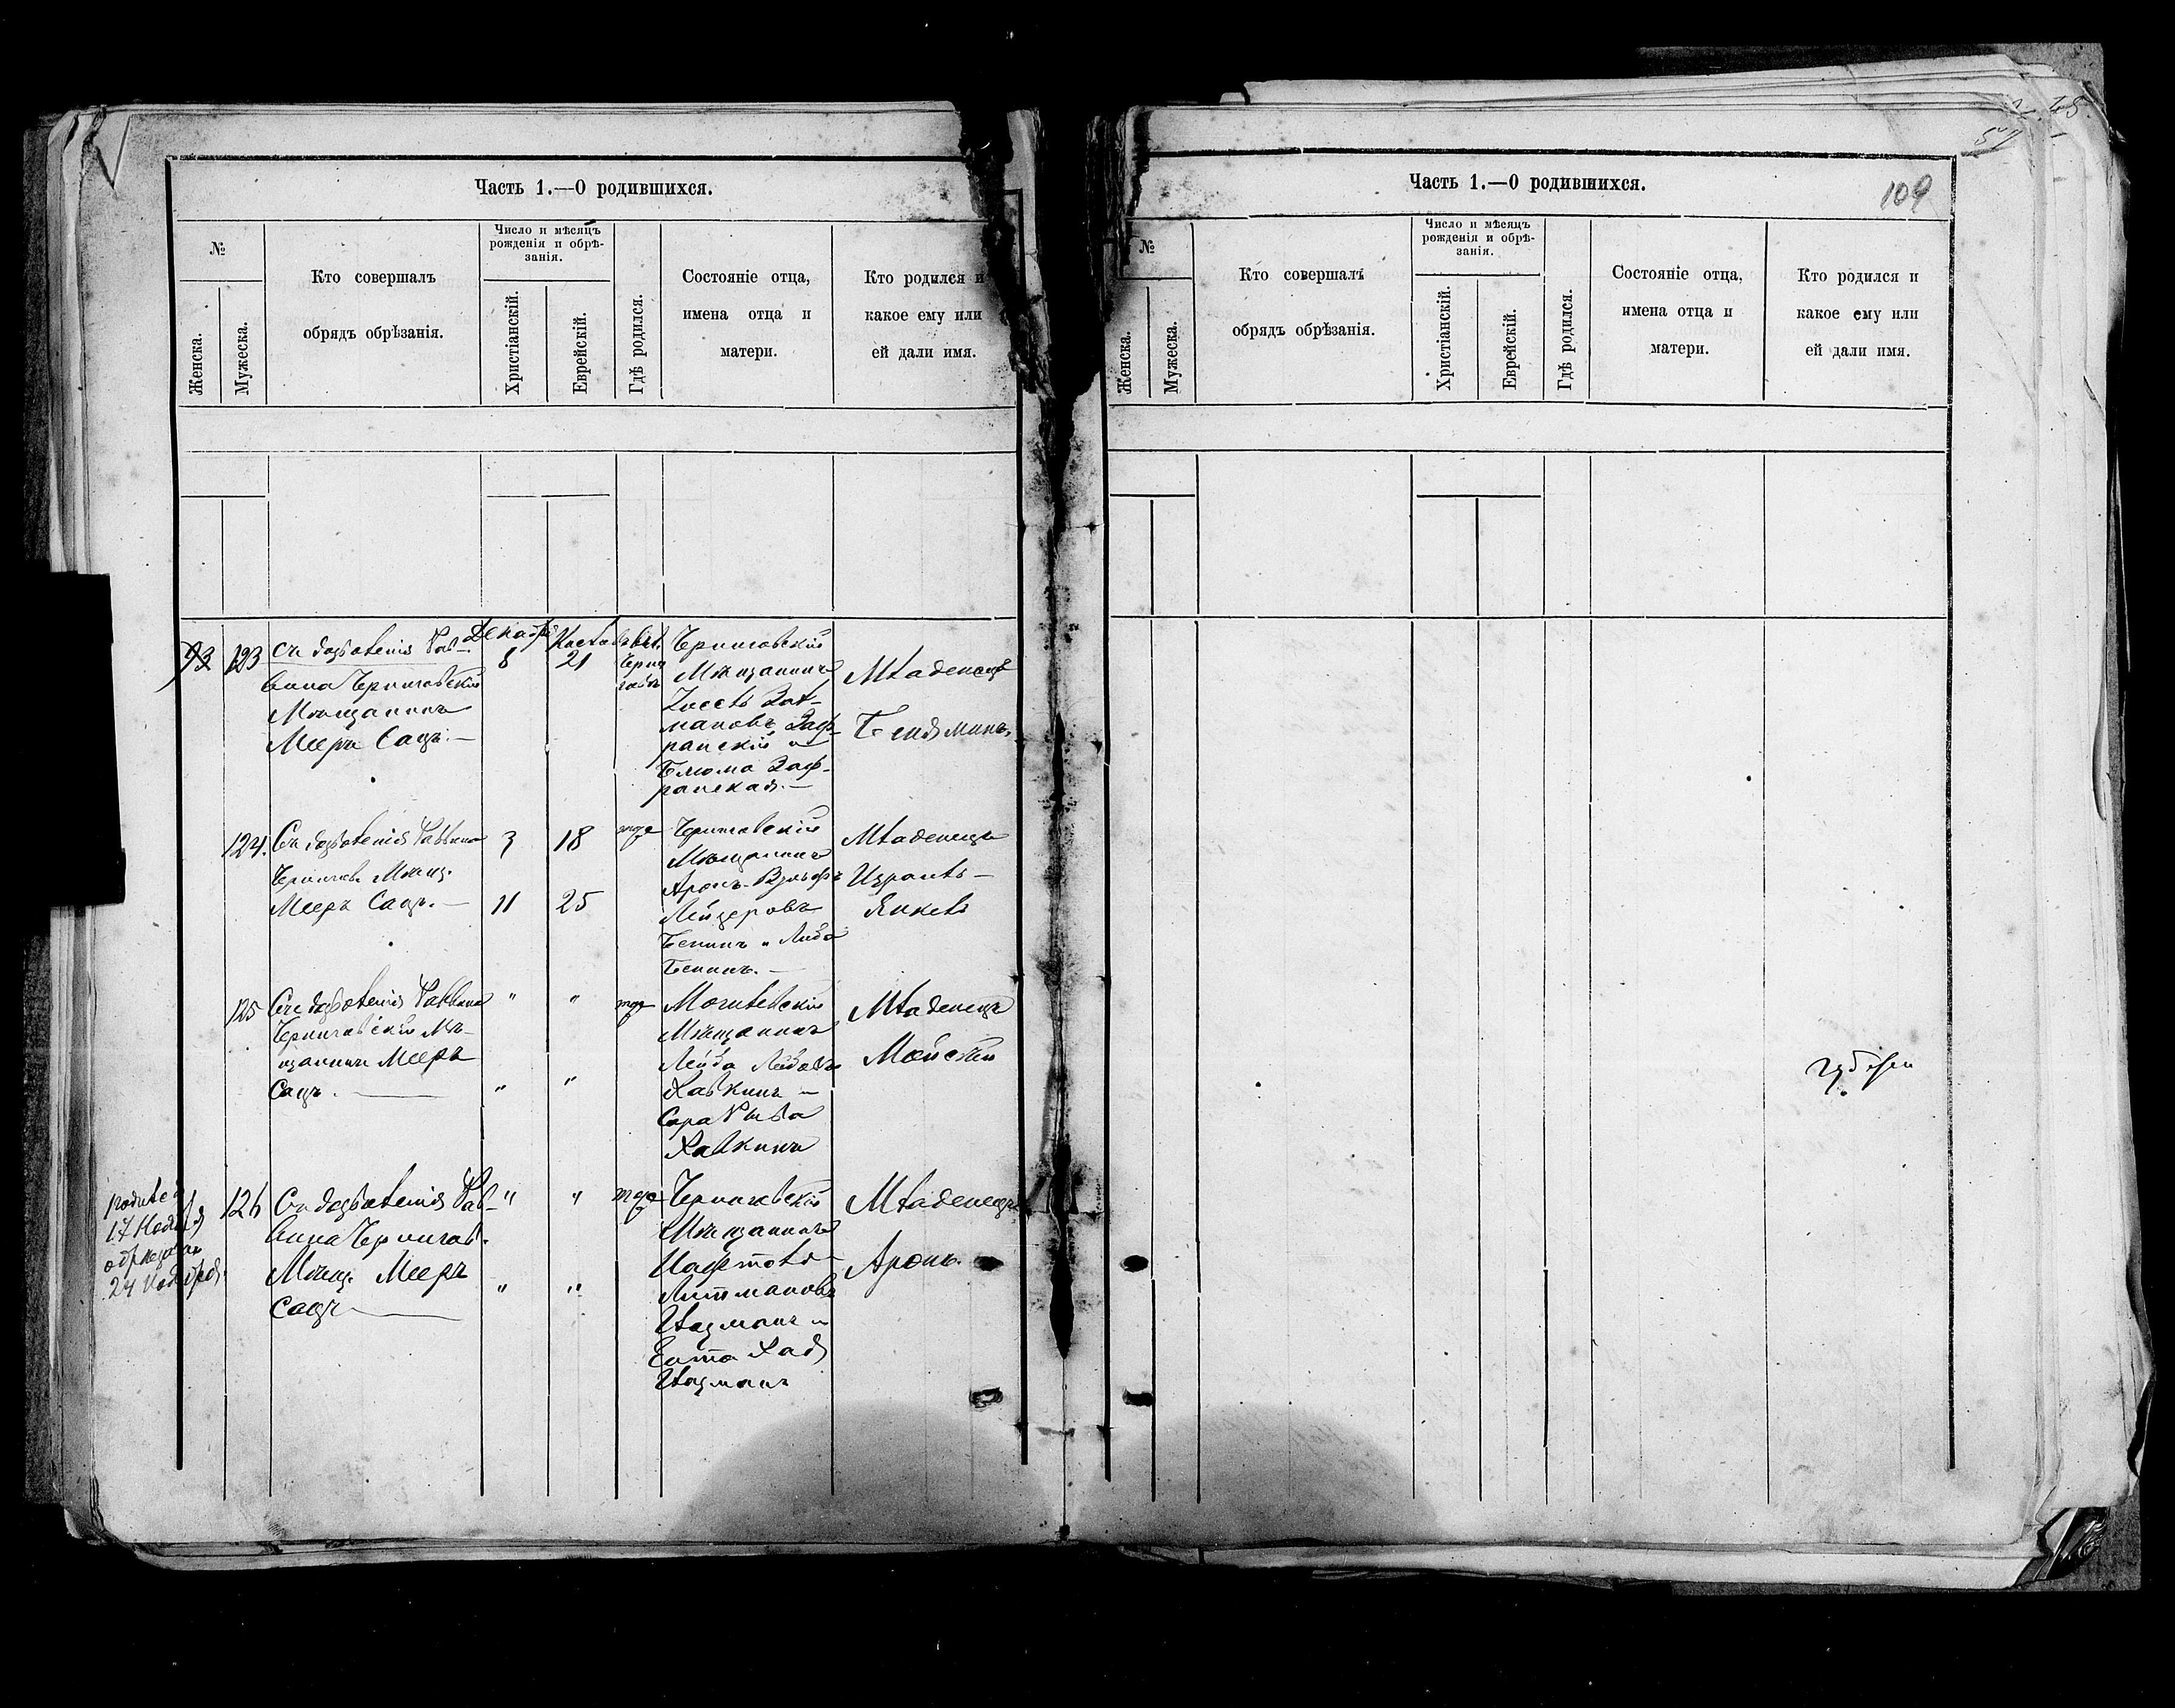 Часть 1.—О родившихся.
№
Женска.
Мужеска.
Кто совершалъ
обрядъ обрѣзанія.
Число и мѣсяцъ
рожденія и обрѣ-
занія.
Христіанскій.
Еврейскій.
Гдѣ родился.
Состояніе отца,
имена отца и
матери.
Кто родился и
какое ему или
ей дали имя.
93 123
Съ дозволенія Рав-
вина Черниговскій
Мѣщанинъ
Мееръ Сацъ.—
Декабрь
8
21
Черни
говъ
Черниговскій
Мѣщанинъ
Зат-
мановъ Заф-
ранскій и
Блюма Заф-
ранская.—
Младенецъ
Беняминъ
124.
Съ дозволенія Раввина
Чернигов. Мѣщ.
Мееръ Сацъ.—
3 18
11 25
тоже
Черниговскій
Мѣщанинъ
Аронъ-Вульфъ
Лейзеровъ
Бенинъ и Либа
Бенинъ.—
Младенецъ
Израиль-
Янкель
125
Съ дозволенія Раввина
Черниговскій Мѣ-
щанинъ Мееръ
Сацъ.
" "
" "
тоже
Могилевскій
Мѣщанинъ
Лейба
Хавкинъ и
Сара Рива
Хавкинъ
Младенецъ
Мойсей
родился
17 Ноября
обрезанъ
24 Ноября.
126
Съ дозволенія Рав-
вина Чернигов.
Мѣщ. Мееръ
Сацъ
" "
" "
тоже
Черниговскій
Мѣщанинъ
Нафтоли
Литмановъ
и
Хая
Младенецъ
Аронъ.
Часть 1.—О родившихся.
109
№
Женска.
Мужеска.
Кто совершалъ
обрядъ обрѣзанія.
Число и мѣсяцъ
рожденія и обрѣ-
занія.
Христіанскій.
Еврейскій.
Гдѣ родился.
Состояніе отца,
имена отца и
матери.
Кто родился и
какое ему или
ей дали имя.